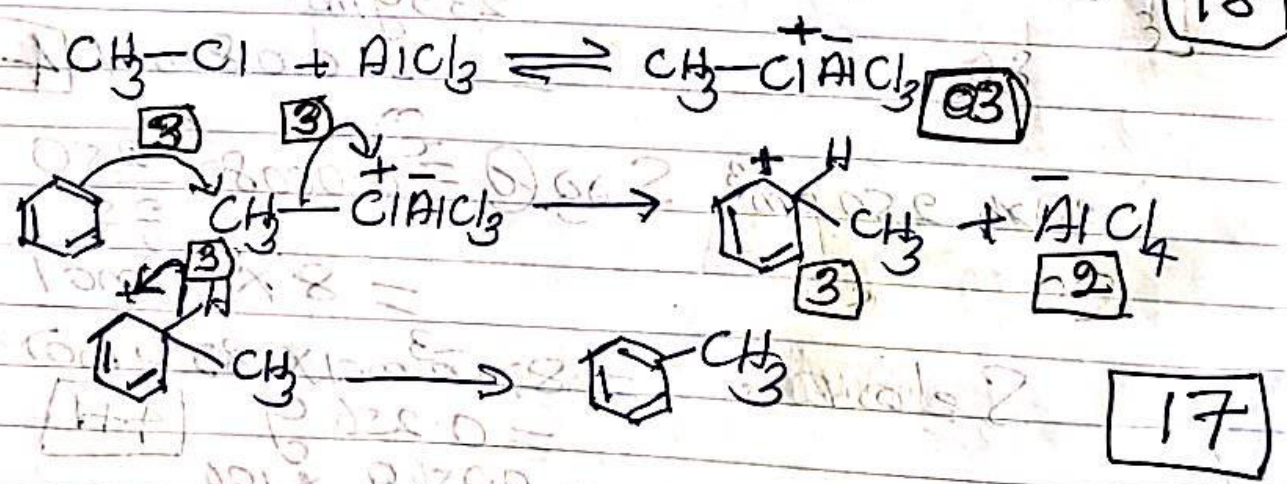 18
CH₃—Cl + AlCl₃ ⇌ CH₃—Cl⁺Al⁻Cl₃ 03
3 3
CH₃—Cl⁺Al⁻Cl₃ → + H CH₃ + Al⁻Cl₄
3 3 2
+ H CH₃ → CH₃
17